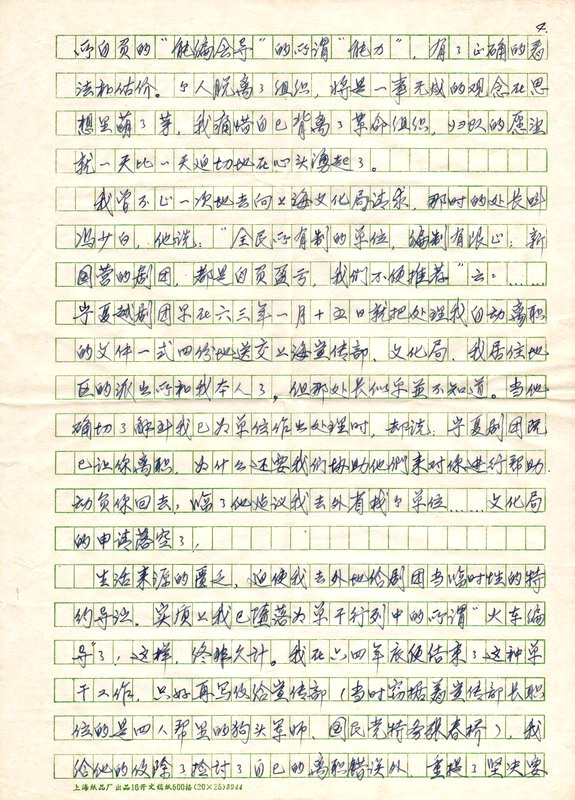 4.
所自负的“能编会导”的所谓“能力”，有了正确的看
法和估价。个人脱离了组织，将是一事无成的观念在思
想里萌了芽，我痛惜自己背离了革命组织，归队的愿望
就一天比一天迫切地在心头涌起了。
我曾不止一次地去向上海文化局请求，那时的处长叫
冯少白，他说：“全民所有制的单位，编制有限止；新
国营的剧团，都是自负盈亏，我们不便推荐”云：……
宁夏越剧团早在六三年一月十五日就把处理我自动离职
的文件一式四份地送交上海宣传部、文化局、我居住地
区的派出所和我本人了，但那处长似乎並不知道。当他
确切了解到我已为单位作出处理时，却说：宁夏剧团既
已让你离职，为什么还要我们协助他们来对你进行帮助、
动员你回去，临了他建议我去外省找个单位……文化局
的申请落空了，
生活来源的匮乏，迫使我去外地给剧团当临时性的特
约导演。实质上我已堕落为单干行列中的所谓“火车编
导”了，这样，终非久计。我在六四年底便结束了这种单
干工作，只好再写信给宣传部（当时窃据着宣传部长职
位的是四人帮里的狗头军师、国民党特务张春桥），我
给他的信除了检讨了自己的离职错误外，重提了坚决要
上海纸品厂出品16开文稿纸500格(20×25)8044